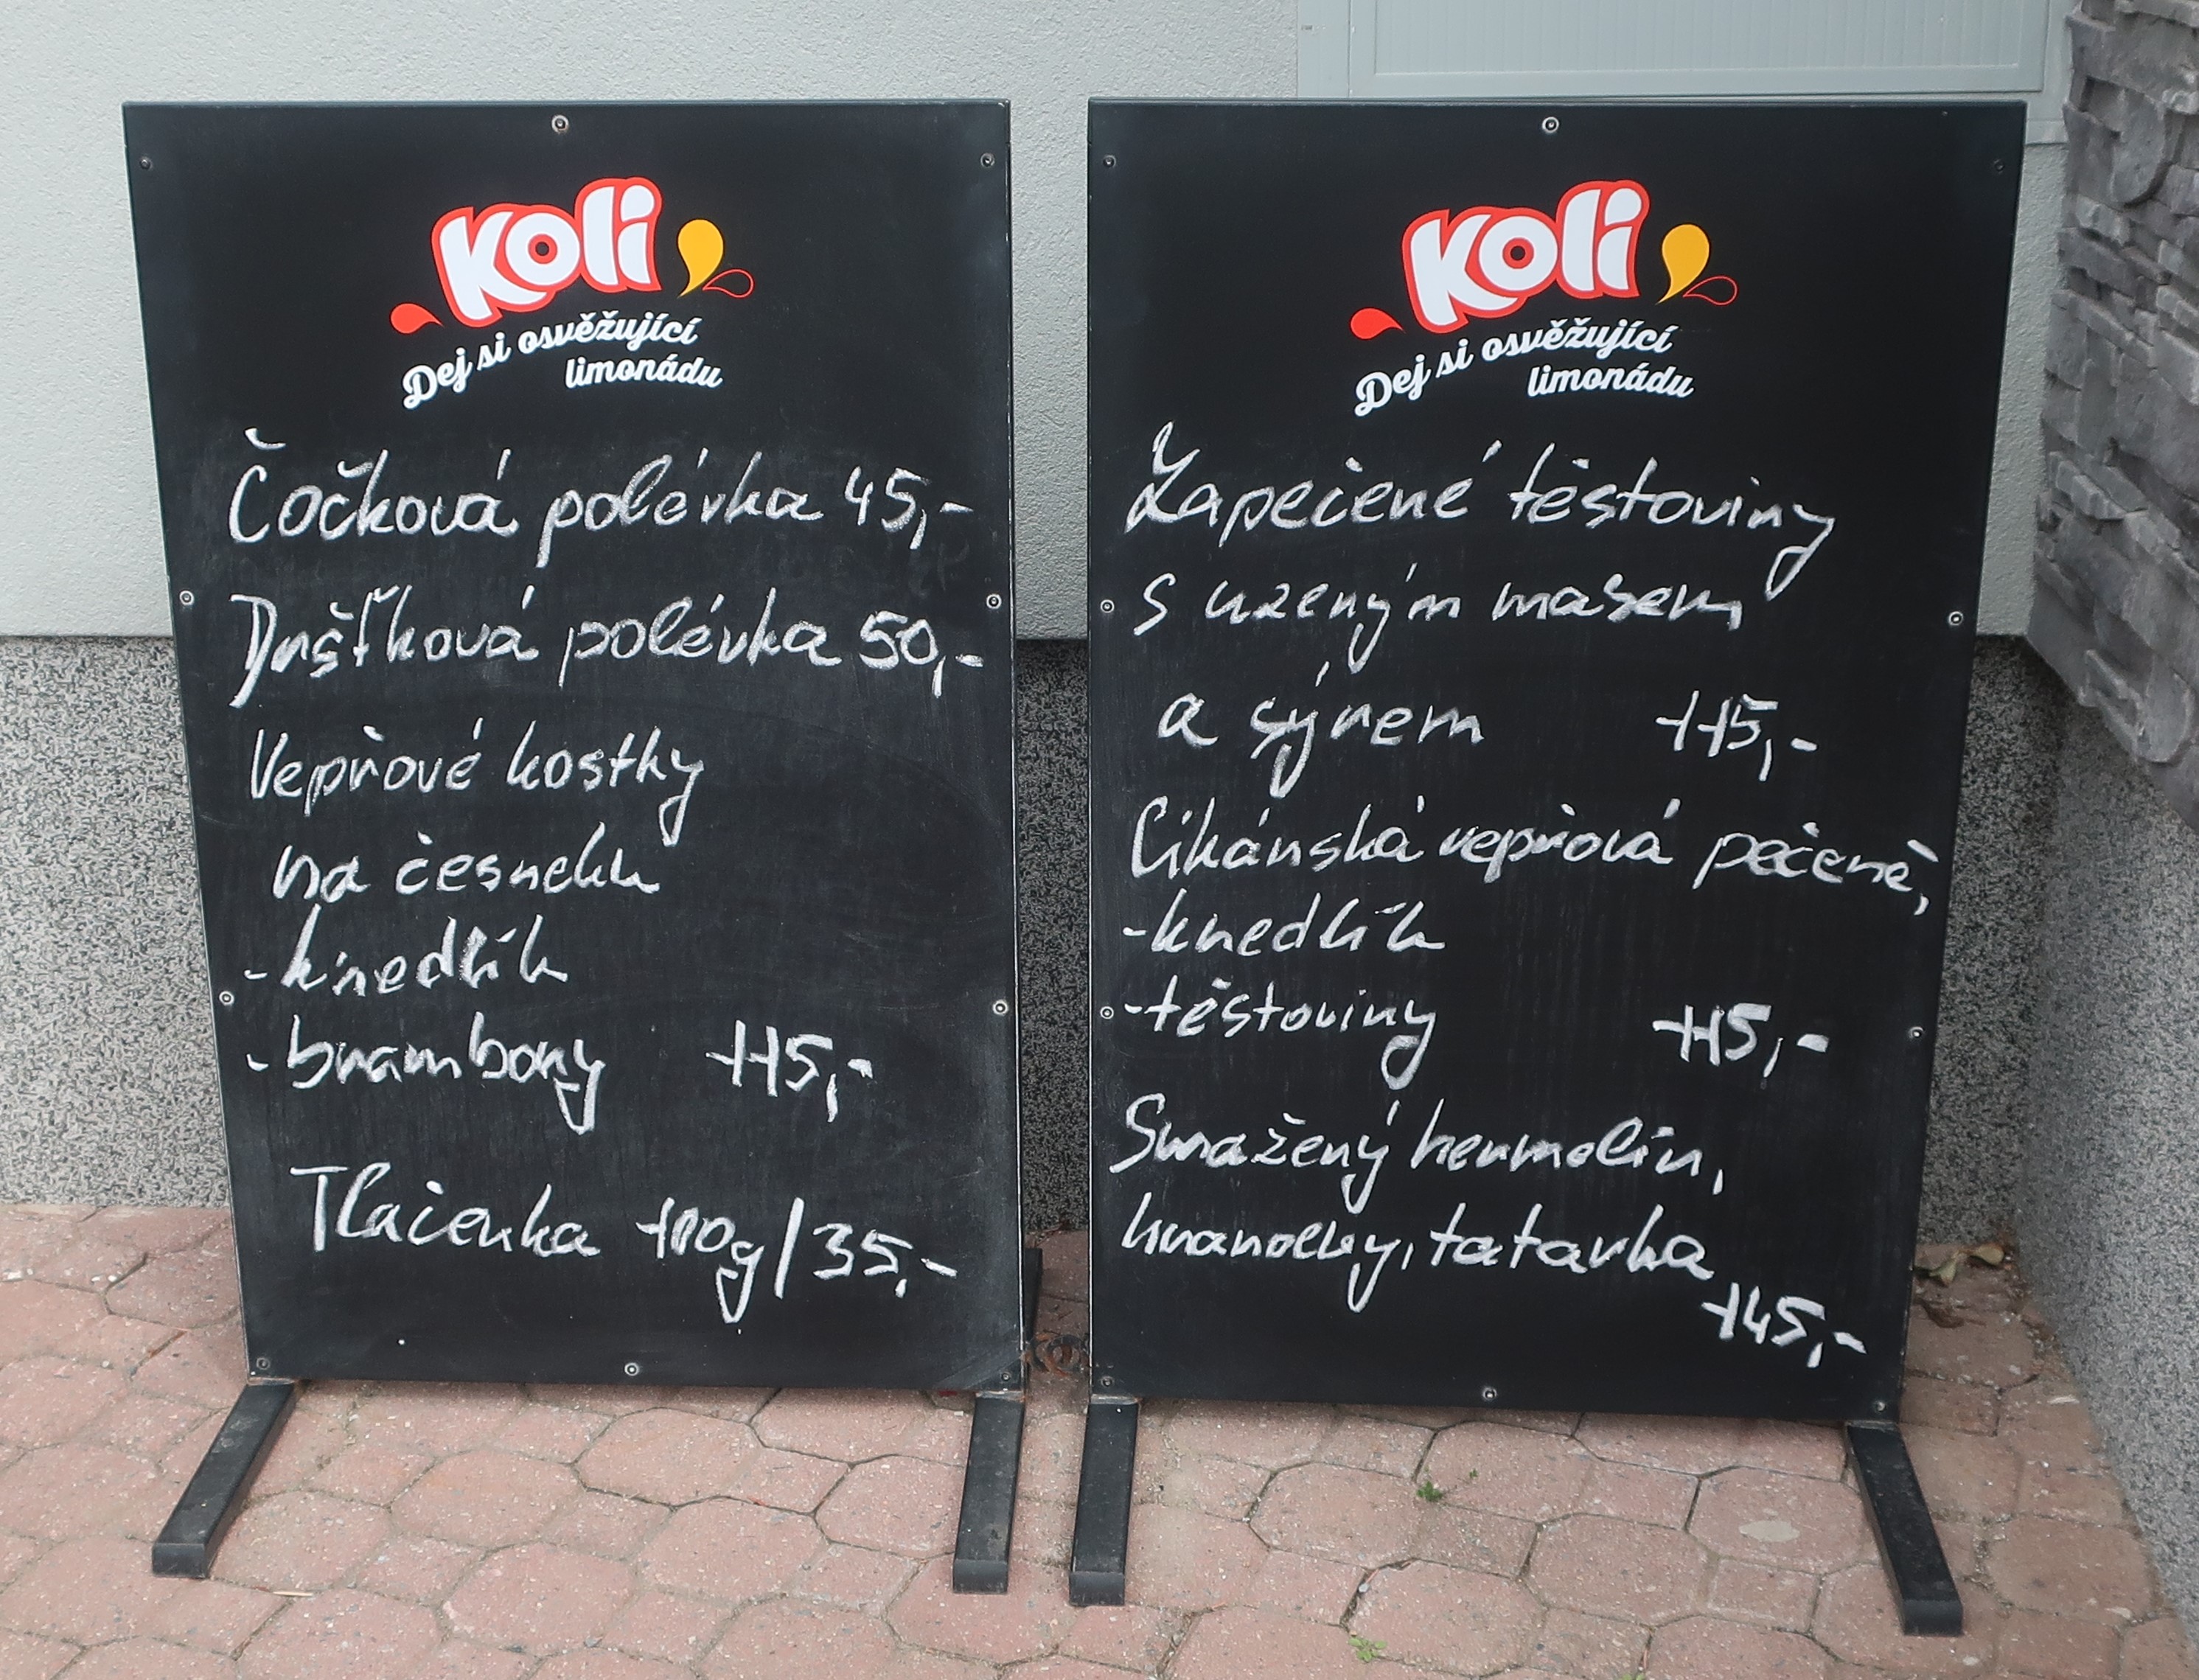 Koli
Dej si osvěžující
limonádu
Čočková polévka 45,-
Dršťková polévka 50,-
Vepřové kostky
na česneku
- knedlík
- brambory 115,-
Tlačenka 100g/35,-
Koli
Dej si osvěžující
limonádu
Zapečené těstoviny
s uzeným masem
a sýrem 115,-
Cikánská vepřová pečeně,
- knedlík
- těstoviny 115,-
Smažený hermelín,
hranolky, tatarka
145,-